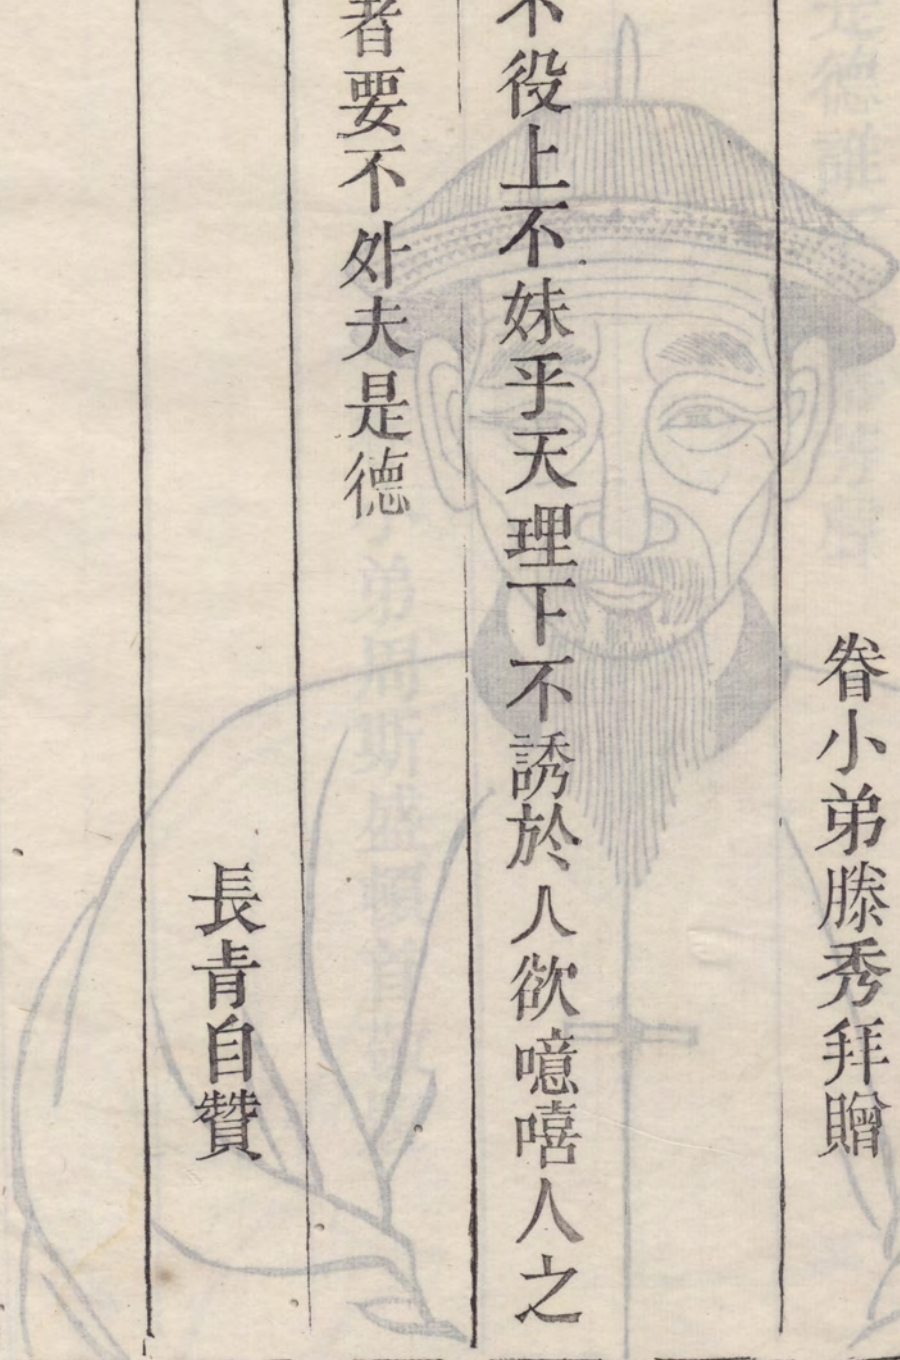 眷小弟滕秀拜贈
不役上不妹乎天理下不誘於人欲噫嘻人之
者要不外夫是德
長青自贊